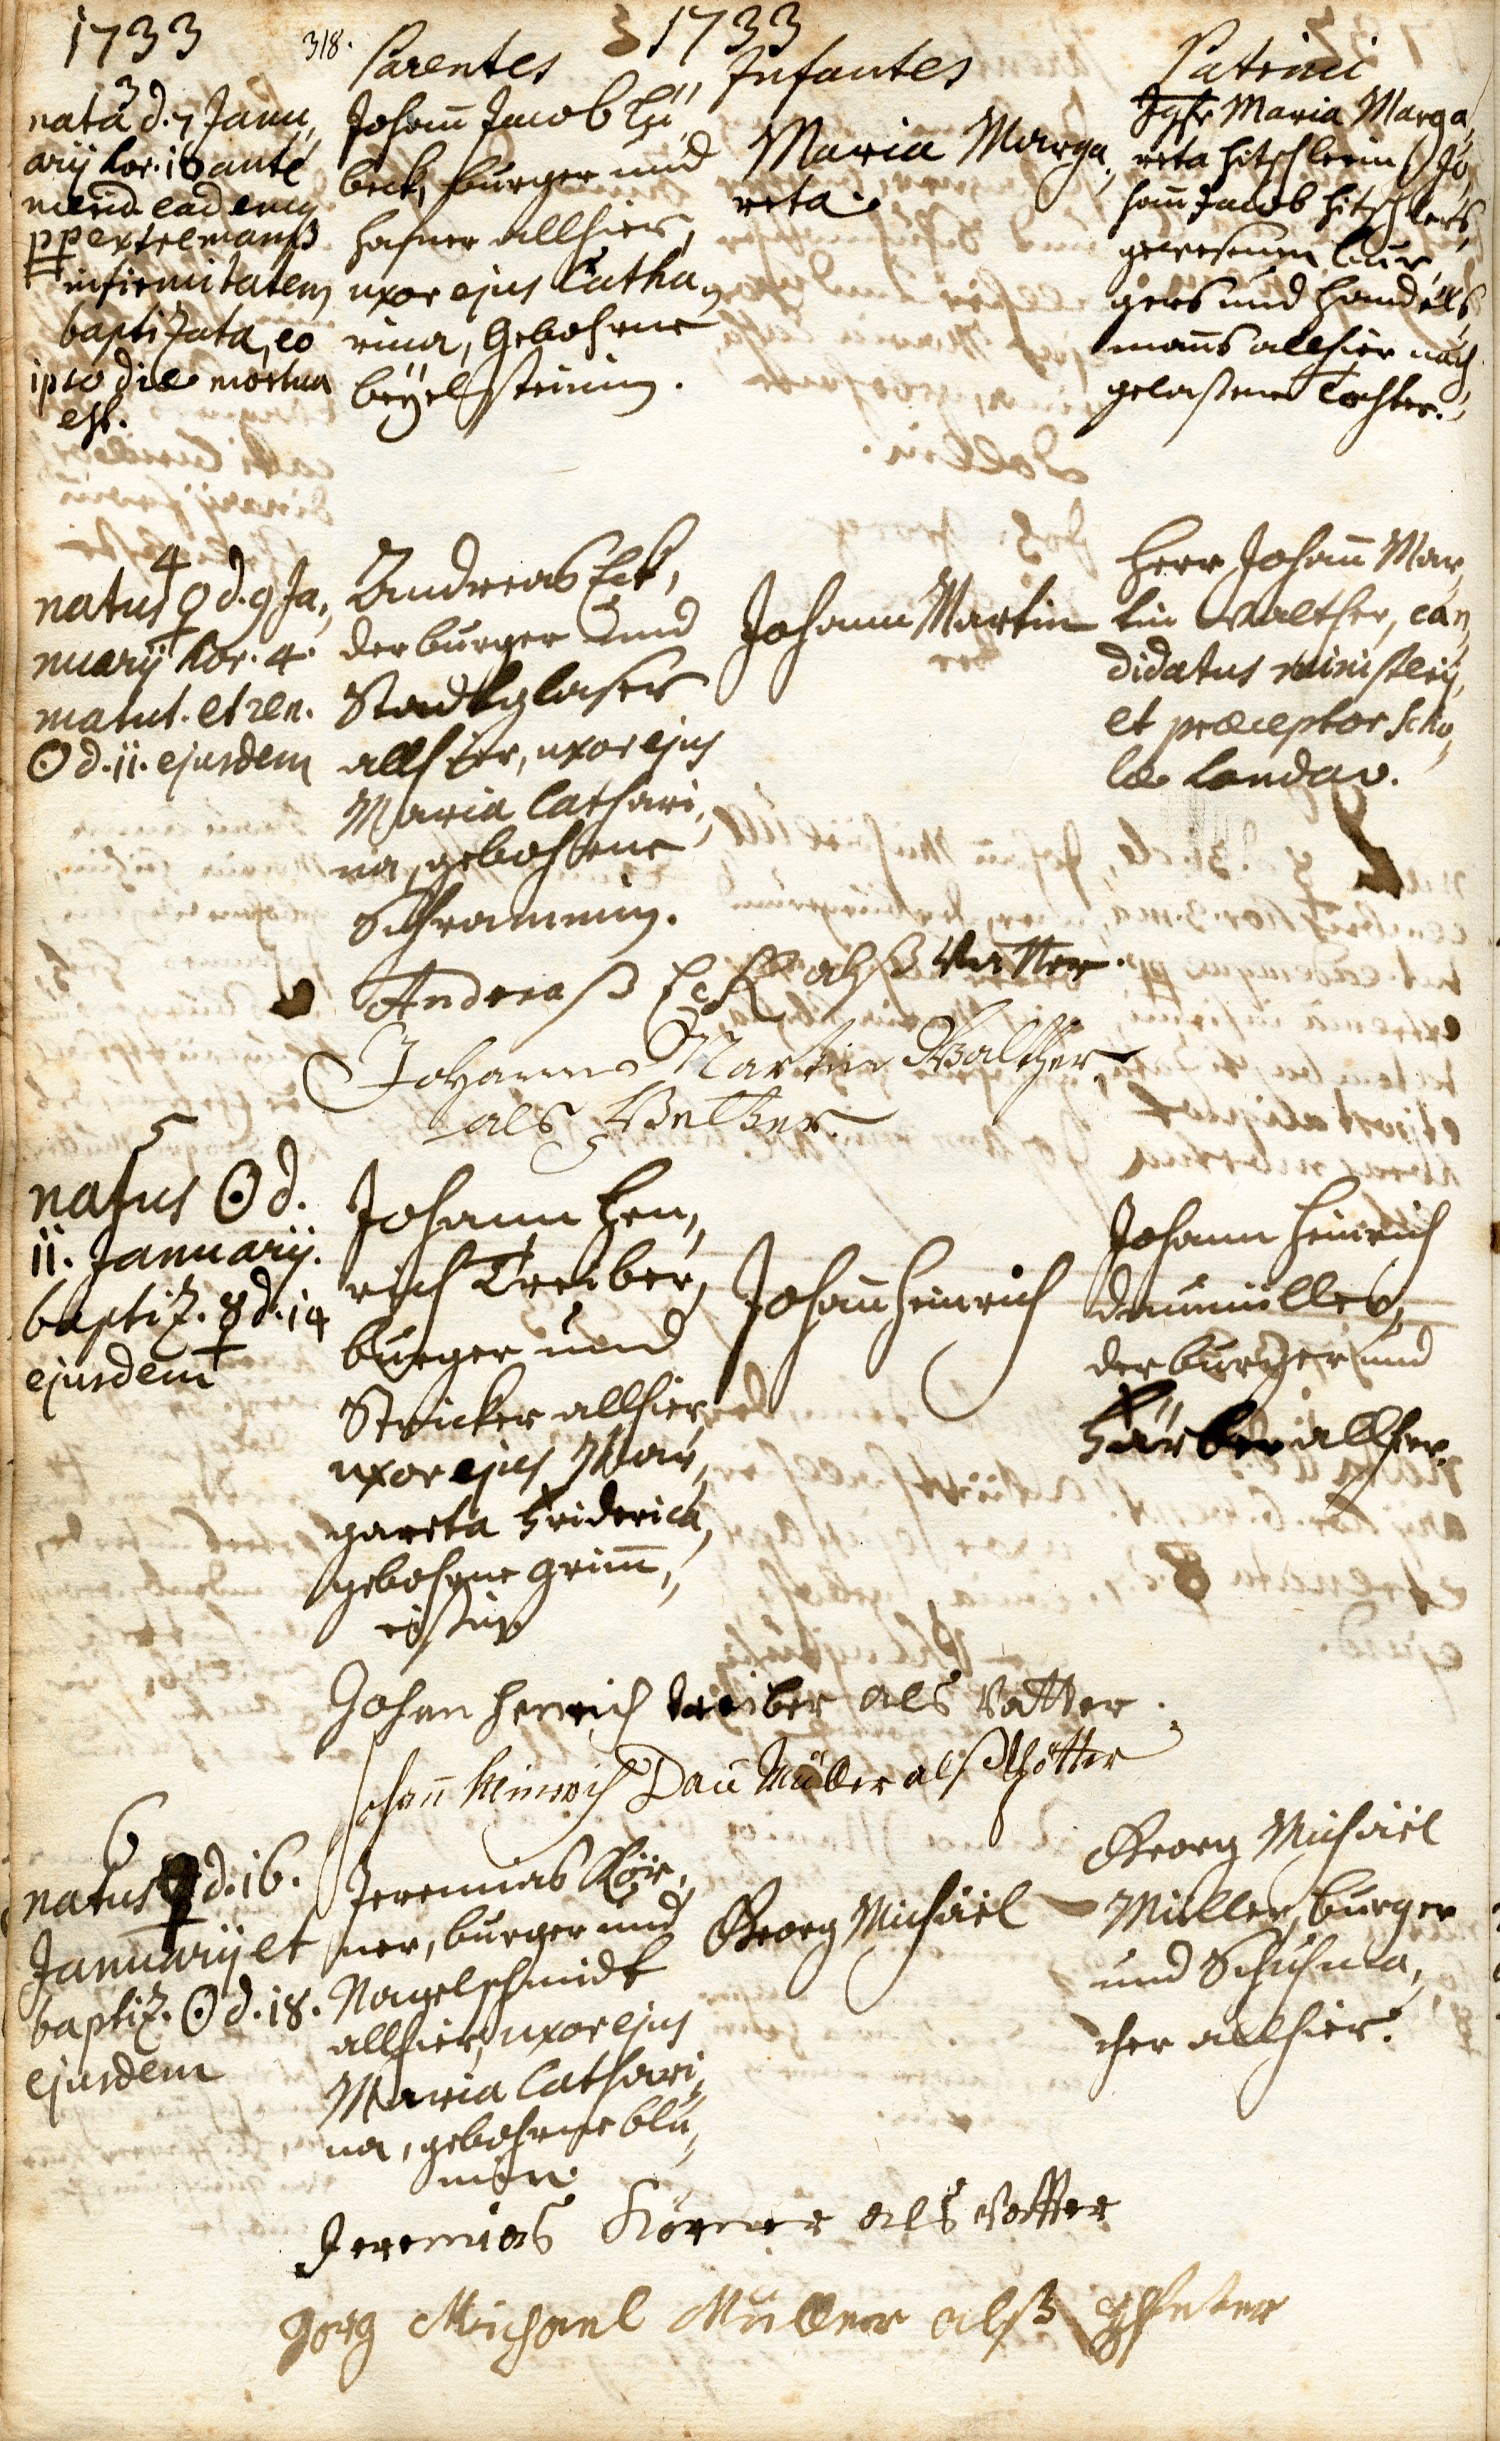 1733
318.
1733
Parentes
Infantes
Patrini
3
nata d. 7 Janu,
arÿ hor. 10 ante
merid. eademq
pp extremam
infirmitatem
baptizata, eo
ipso die mortua
est.
Johan̄ Jacob Lü,
beck, burger und
hafner allhier,
uxor ejus Catha,
rina, gebohrne
beÿelsteinin.
Maria Marga,
reta.
Jgfr Maria Marga,
reta hitschlerin, Jo,
han̄ Jacob hitschlers,
gewesenen bur,
gers und handels,
man̄s allhier nach
gelaßene Tochter.
4
natus ♀ d. 9 Ja,
nuarÿ hor. 4.
matut. et ren.
☉ d. 11. ejusdem
Andreas Eck,
der burger und
Stadtglaser
allhier, uxor ejus
Maria Cathari,
na, gebohrne
Schrammin.
Johann Martin
Herr Johan̄ Mar,
tin Walther, can,
didatus ministerÿ,
et præceptor scho,
læ Landav.
Andreaß Eck alß Vatter.
Johann Martin Walther
als Petter.
5
natus ☉ d.
11. Januarÿ.
baptiz. ☿ d. 14
ejusdem
Johann Hen,
rich Treiber,
burger und
Stricker allhier
uxor ejus Mar,
gareta Friderica,
gebohrne Grim̄,
eißin
Johan̄ Heinrich
Johann Heinrich
Daumüller,
der burger und
Färber allhier.
Johan Henrich treiber als Vatter.
Johan̄ Heinrich Dau Müller alß Pfötter
6
natus ♀ d. 16.
Januarÿ et
baptiz. ☉ d. 18.
ejusdem
Jeremias Kör,
ner, burger und
Nagelschmidt
allhier, uxor ejus
Maria Cathari,
na, gebohrne blu,
min.
Georg Michäel
Georg Michäel
Müller, burger
und Schuhma,
cher allhier.
Jeremias Körner als Vatter
Görg Michael Müller alß Pfetter